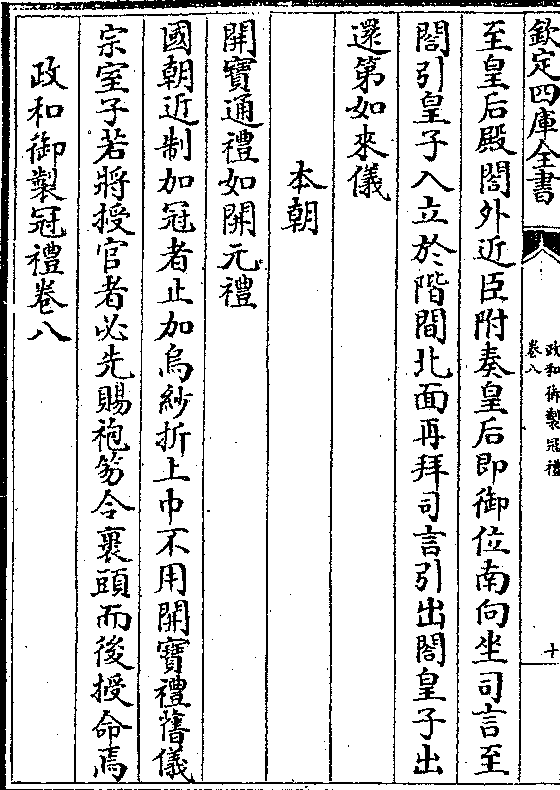 欽定四庫全書
政和御製冠禮
卷八
十
至皇后殿閤外近臣附奏皇后即御位南向坐司言至
閤引皇子入立於階間北面再拜司言引出閤皇子出
還第如來儀
本朝
開寶通禮如開元禮
國朝近制加冠者止加烏紗折上巾不用開寶禮舊儀
宗室子若將授官者必先賜袍笏令裹頭而後授命焉
政和御製冠禮卷八